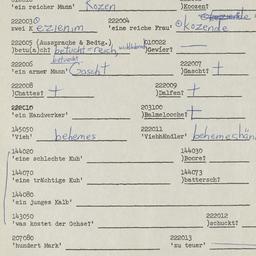 'ein reicher Mann' Kozen )Koosen?
222003 222004
zwei K ezienim 'eine reiche Frau' kozende
222005 (Aussprache & Bedtg.) 010022
)betu(a)cht betucht = reich, )Gewier? —
222006 betucht 222007
'ein armer Mann' Gascht )Gascht? †
222008 222009
)Chattes? † )Dalfen? †
222010 203100
'ein Handwerker' )Balmelooche? †
145050 222011
'Vieh' behemes 'Viehhändler' behemeshän
144020 144030
'eine schlechte Kuh' )Poore?
144070 144073
'eine trächtige Kuh' )battersch?
144080
'ein junges Kalb'
143050 222012
'was kostet der Ochse?' )schuckt?
207080 222013
'hundert Mark' 'zu teuer'